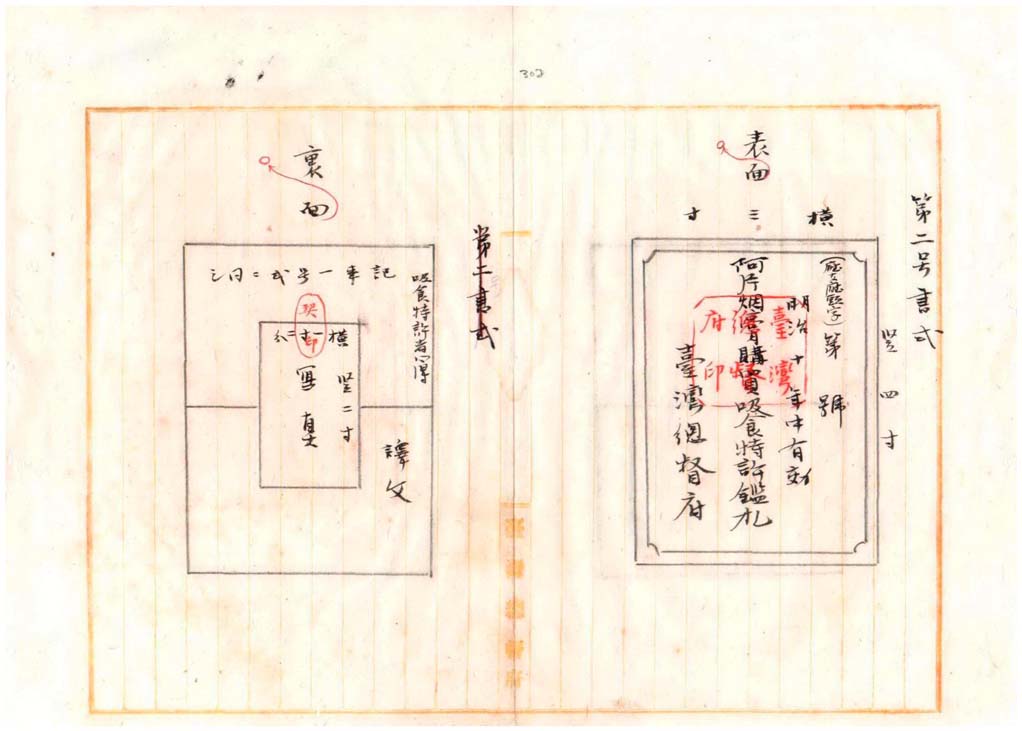 302
第二号書式
竪四寸
表面
横三寸
(庶庶點字)第 號
明治 十 年中有効
阿片烟膏購買吸食特許鑑札
臺灣總督府
臺灣總督府印
第二書式
裏面
吸食特許者心得
記事一号式ニ同シ
契印
横一寸二分
竪二寸
寫真
譯文
臺灣總督府